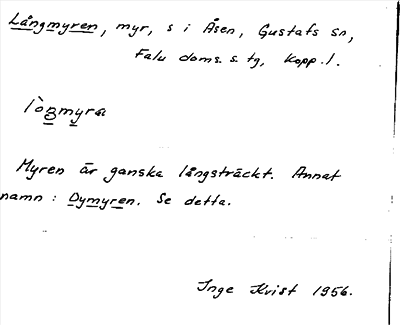 Långmyren, myr, s i Åsen, Gustafs sn,
Falu doms. s. tg, Kopp. l.
lòŋmyra
Myren är ganska långsträckt. Annat
namn : Dymyren. Se detta.
Inge Kvist 1956.